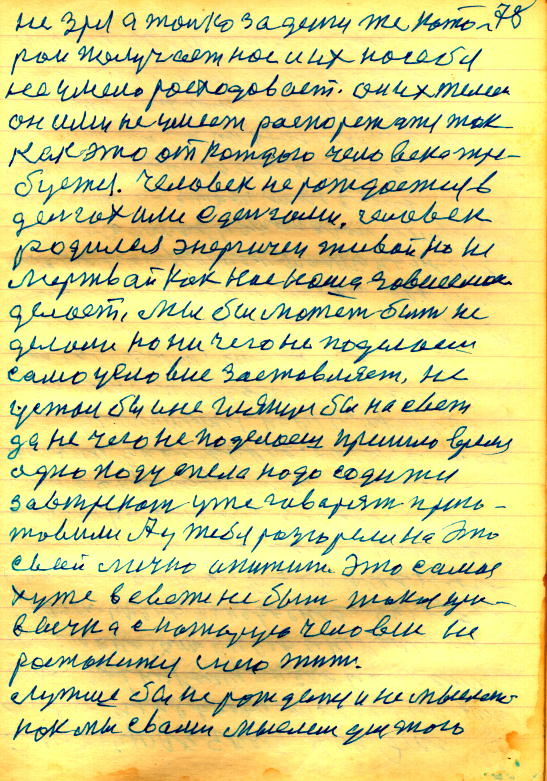 не зря а только за дети же кото- 78
рои получает нос и их пособи
не умело росходовает. он их
он ими не умеет распорежату так
Как это от Каждого человека тре-
буетя. Человек не рождается в
денгах или с денгами. человек
родился энергичен живой но не
мертвай Как нас наша зависемост
делает. Мы бы может быть не
делали но ни чего не поделаеш
само условие заставляет. не
устал бы и не глянул бы на свет
да не чего не поделаеш пришло время
одно подуспела надо садится
завтрекат уже говарят приго-
товили А у тебя разгорели на Это
свай лично апитит. Это самая
хуже в свете не быт такая при-
вычка с которую человек не
растанится с нею жит.
Лутше бы не рождатя и не мыслит
как мы сваими мыслеми для того